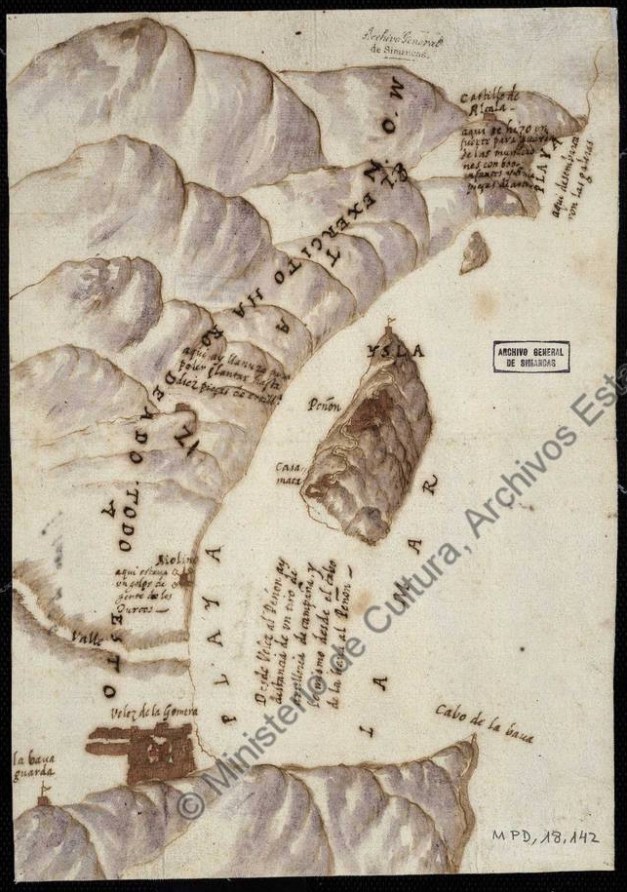 Archivo General
de Simancas
Castillo de
Alcala
aqui se hizo un
fuerte para
de las
nes con
infantes
piezas de
PLAYA
aqui desembarca
ron las galeras
MON
EL EXERCITO HA RODEADO TODO ESTO
ARCHIVO GENERAL
DE SIMANCAS
YSLA
Peñon
Casa
mata
aqui ay llanura para
poder plantar hasta
diez piezas de
Molino
aqui estava
un golpe de
gente de los
Turcos
Valle
PLAYA
Desde Velez al Peñon ay
distancia de un tiro de
artilleria de campaña y
lo mismo desde el cabo
de la bava al Peñon
LA MAR
Velez de la Gomera
la bava
guarda
Cabo de la bava
© Ministerio de Cultura, Archivos Esta
MPD, 18, 142